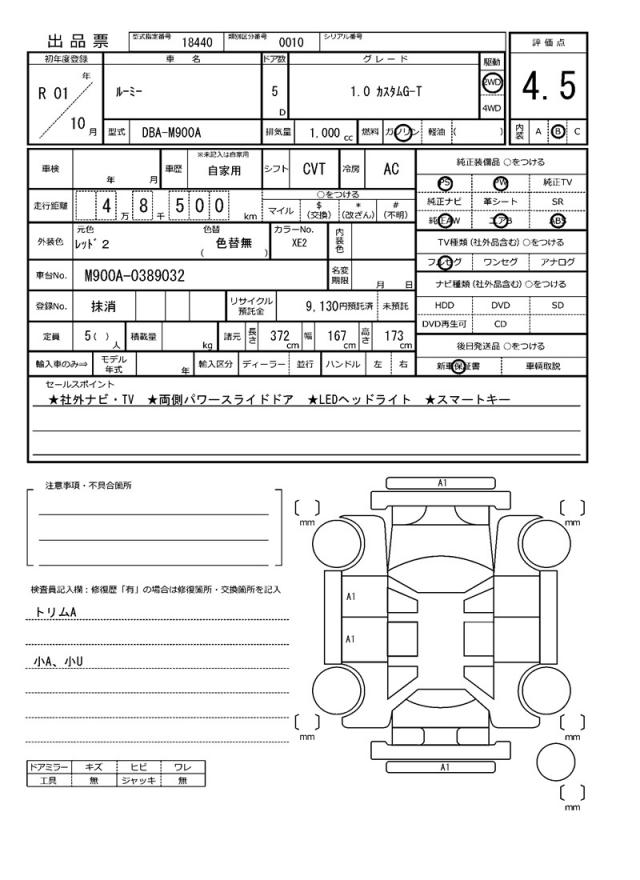 出品票 型式指定番号 18440 類別区分番号 0010 シリアル番号
評価点
4.5
内装 A B C
初年度登録 車名 ドア数 グレード 駆動
R 01 年 10 月
ルーミー 5 D 1.0 カスタムG-T 2WD 4WD
型式 DBA-M900A 排気量 1,000 cc 燃料 ガソリン 軽油 ( )
車検 年 月 車歴 ※未記入は自家用 自家用 シフト CVT 冷房 AC
走行距離 4 万 8 千 5 0 0 km
○をつける
マイル $(交換) *(改ざん) #(不明)
外装色 元色 レッド2 色替 ( 色替無 ) カラーNo. XE2 内装色
車台No. M900A-0389032 名変期限 月 日
登録No. 抹消 リサイクル預託金 9,130円預託済 未預託
定員 5( ) 人 積載量 kg 諸元 長さ 372 cm 幅 167 cm 高さ 173 cm
輸入車のみ⇒ モデル年式 年 輸入区分 ディーラー 並行 ハンドル 左 右
純正装備品 ○をつける
PS PW 純正TV
純正ナビ 革シート SR
純正AW エアB ABS
TV種類 (社外品含む) ○をつける
フルセグ ワンセグ アナログ
ナビ種類 (社外品含む) ○をつける
HDD DVD SD
DVD再生可 CD
後日発送品 ○をつける
新車保証書 車輌取説
セールスポイント
★社外ナビ・TV ★両側パワースライドドア ★LEDヘッドライト ★スマートキー
注意事項・不具合箇所
検査員記入欄：修復歴「有」の場合は修復箇所・交換箇所を記入
トリムA
小A、小U
ドアミラー キズ ヒビ ワレ
工具 無 ジャッキ 無
A1
mm
mm
A1
A1
mm
mm
A1
mm